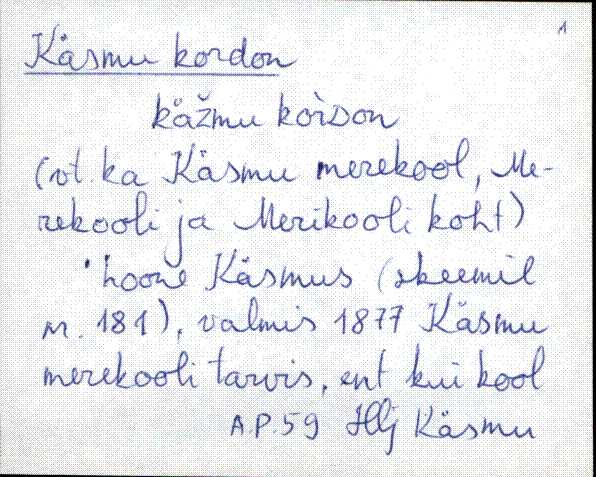 1
Käsmu kordon
kåžmu koi̇̀Don
(vt. ka Käsmu merekool, Me-
rekooli ja Merikooli koht)
hoone Käsmus (skeemil
nr. 181), valmis 1877 Käsmu
merekooli tarvis, ent kui kool
A.P.59 Hlj Käsmu